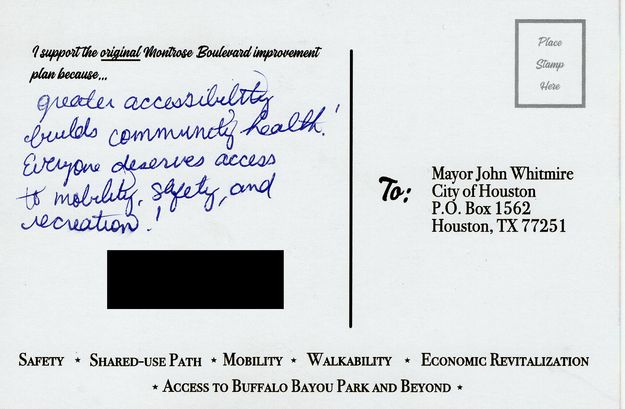 I support the original Montrose Boulevard improvement
plan because...
greater accessibility
builds community health!
Everyone deserves access
to mobility, safety, and
recreation!
Place
Stamp
Here
To:
Mayor John Whitmire
City of Houston
P.O. Box 1562
Houston, TX 77251
SAFETY ★ SHARED-USE PATH ★ MOBILITY ★ WALKABILITY ★ ECONOMIC REVITALIZATION
★ ACCESS TO BUFFALO BAYOU PARK AND BEYOND ★